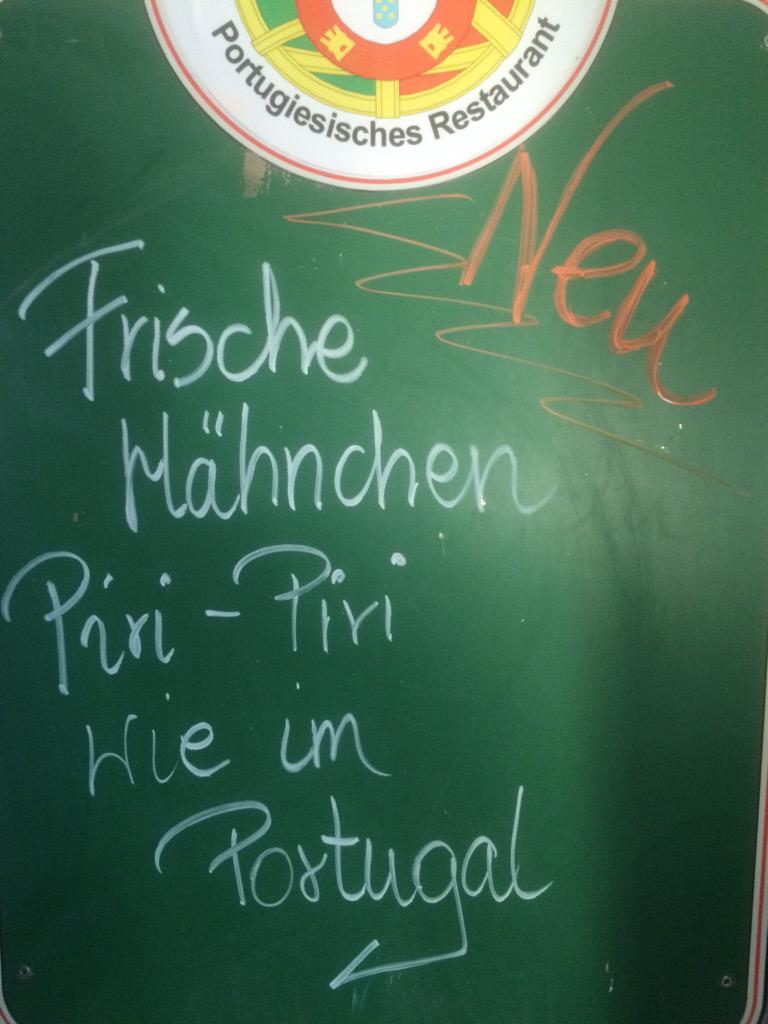 Portugiesisches Restaurant
Neu
Frische
Hähnchen
Piri - Piri
wie im
Portugal